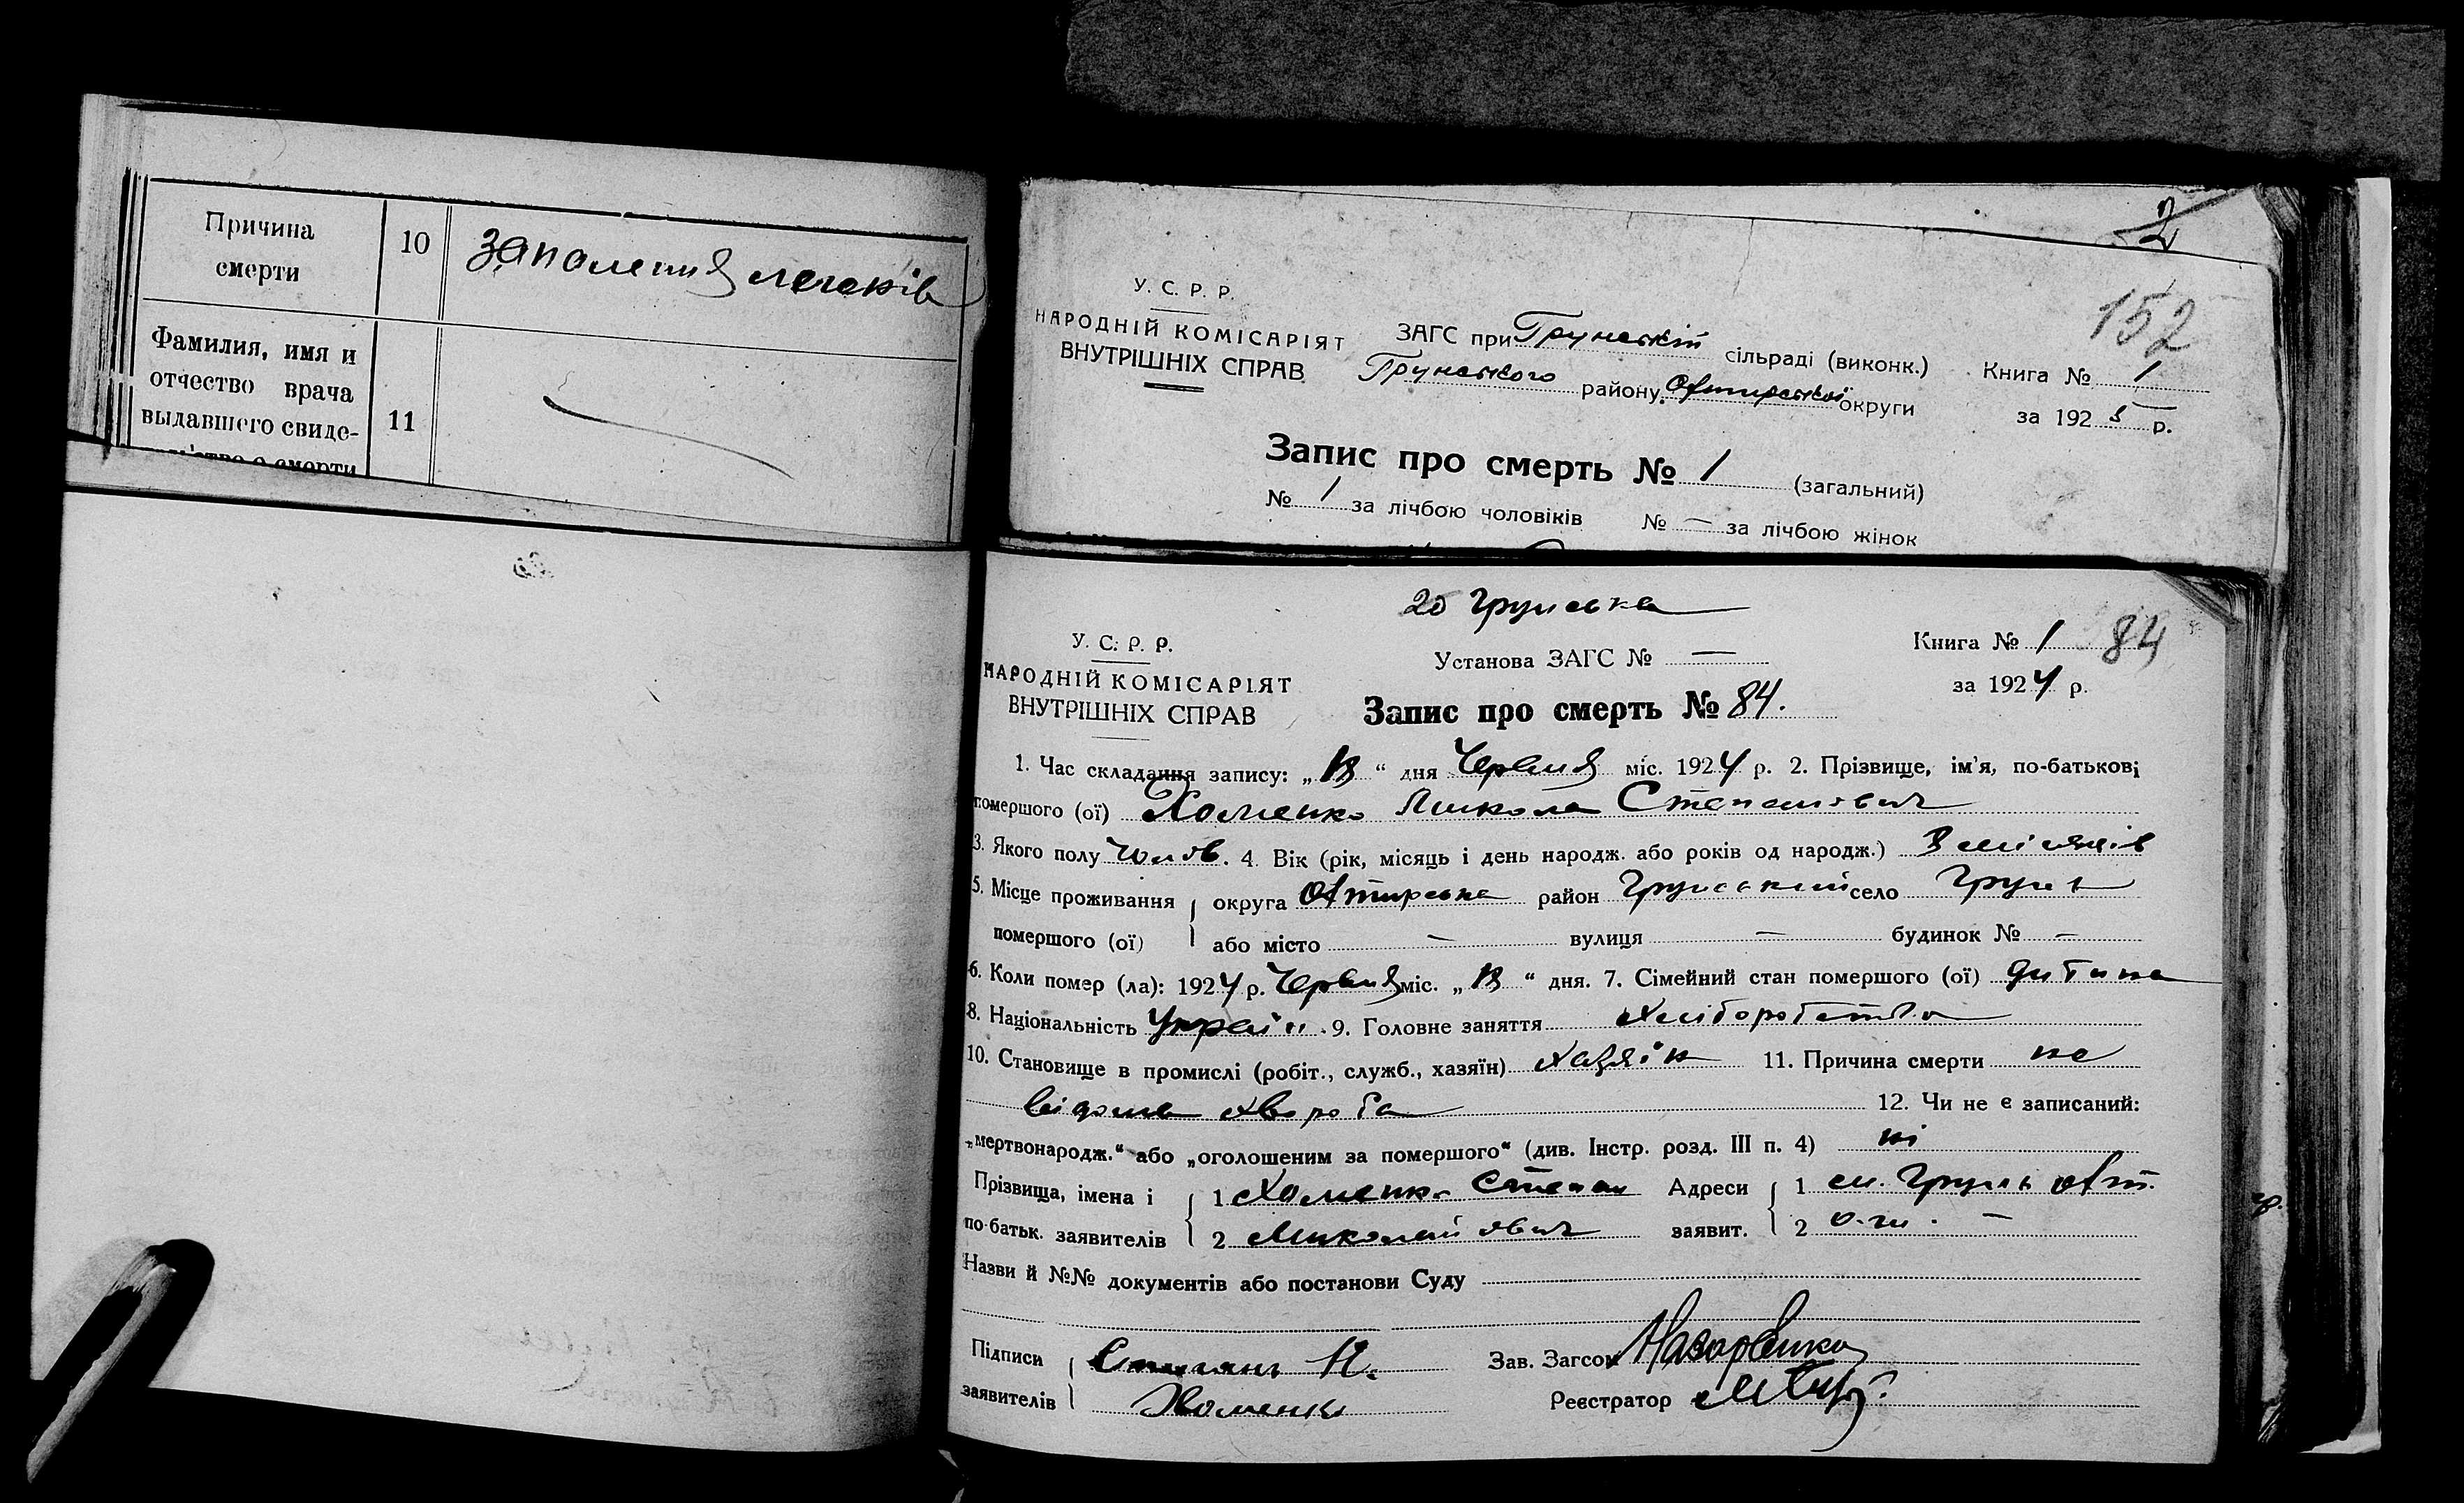 Причина смерти
10
запалення легенів
Фамилия, имя и отчество врача выдавшего свиде-
11
2
152
У. С. Р. Р.
НАРОДНІЙ КОМІСАРІЯТ
ВНУТРІШНІХ СПРАВ
ЗАГС при Грунській сільраді (виконк.)
Грунського району Охтирської округи
Книга № 1
за 1925 р.
Запис про смерть № 1 (загальний)
№ 1 за лічбою чоловіків № — за лічбою жінок
20 Грунська
84
У. С. Р. Р.
НАРОДНІЙ КОМІСАРІЯТ
ВНУТРІШНІХ СПРАВ
Установа ЗАГС № —
Книга № 1
за 1924 р.
Запис про смерть № 84.
1. Час складання запису: „ “ дня Червня міс. 1924 р. 2. Прізвище, ім'я, по-батькові
помершого (ої) Хоменко Микола Степанович
3. Якого полу чолов. 4. Вік (рік, місяць і день народж. або років од народж.) 8 місяців
5. Місце проживання округа Охтирська район Грунський село Грунь
помершого (ої) або місто — вулиця — будинок № —
6. Коли помер (ла): 1924 р. Червня міс. „ “ дня. 7. Сімейний стан помершого (ої) дитина
8. Національність Україн. 9. Головне заняття хліборобство
10. Становище в промислі (робіт., служб., хазяїн) хазяїн 11. Причина смерти не
відома хвороба 12. Чи не є записаний:
„мертвонародж.“ або „оголошеним за помершого“ (див. Інстр. розд. III п. 4) ні
Прізвища, імена і 1 Хоменко Степан Адреси 1 см. Грунь Охт.
по-батьк. заявителів 2 Миколайович заявит. 2 о-ги. —
Назви й №№ документів або постанови Суду
Підписи Степанъ Н. Зав. Загсом Назаренко
заявителів Хоменко Реєстратор